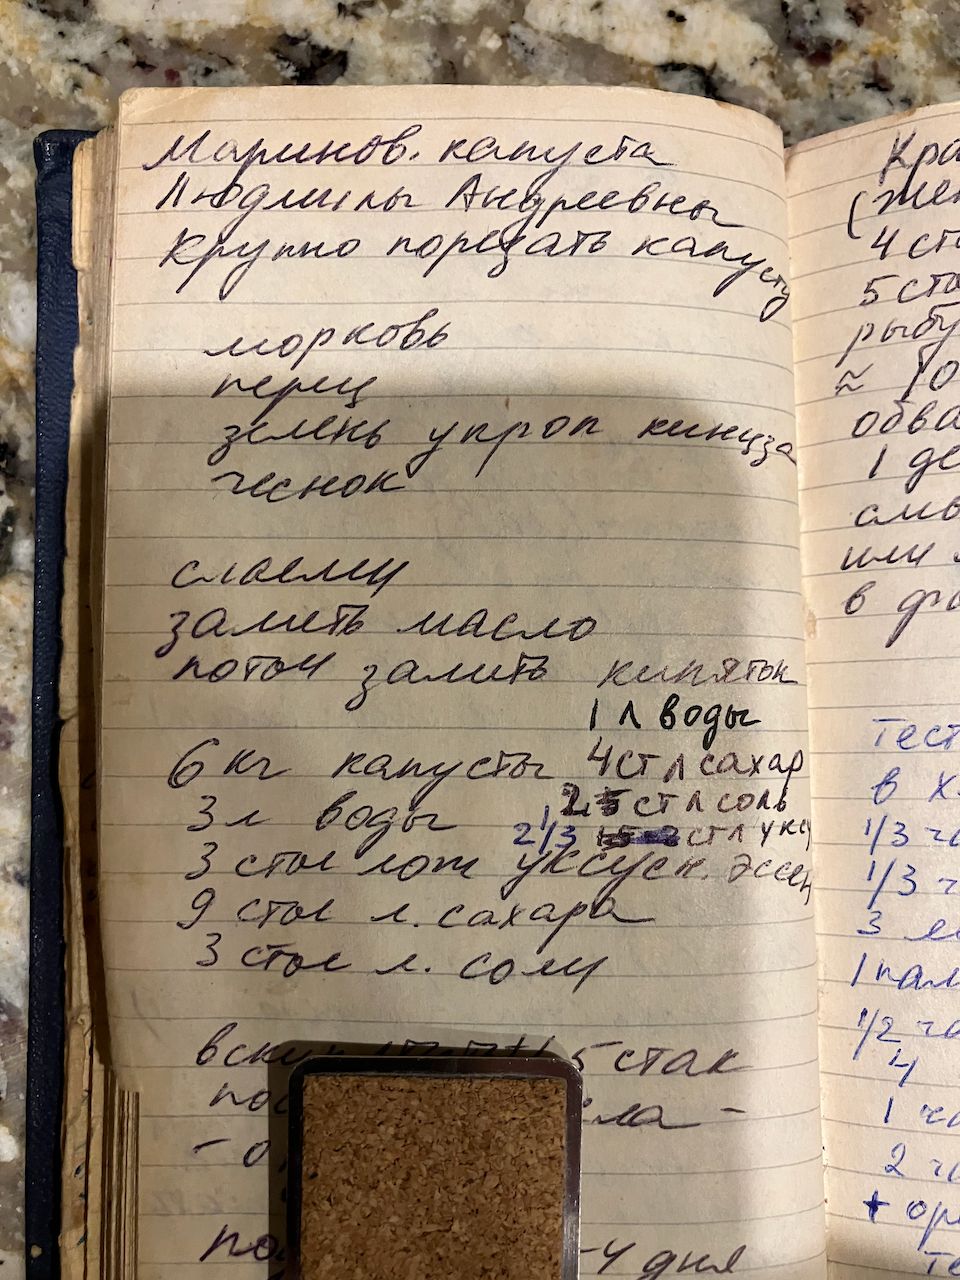 Маринов. капуста
Людмилы Андреевны
Крупно порезать капусту
морковь
перец
зелень упроп кинцза
чеснок
слоеми
залить масло
потом залить кипяток
1 л воды
6 кг капусты 4 ст л сахар
3 л воды 2 ст л соль
2/3 ст л укс
3 стол лож уксусн. эссен
9 стол л. сахара
3 стол л. соли
5 стак
-4 дня
Кра
(жен
4 ст
5 ста
рыбу
≈
обва
1 де
или
в
тест
в
1/3 ча
1/3 ч
3
1 пал
1/2 ча
4
1 ча
2 ча
+ оре
те